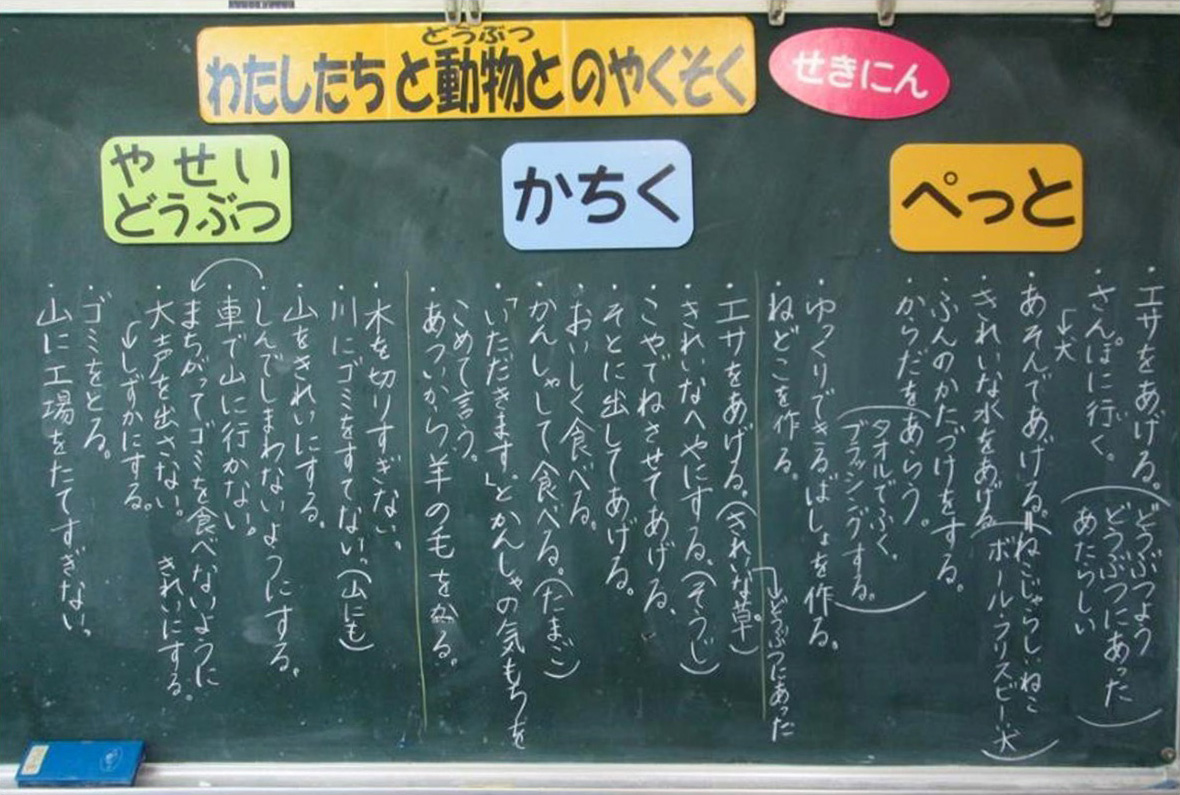 どうぶつ
わたしたちと動物とのやくそく
せきにん
ぺっと
・エサをあげる。
(どうぶつよう
どうぶつにあった
あたらしい)
・さんぽに行く。
↳犬
・あそんであげる。
ねこじゃらし、ねこ
(ボール・フリスビー、犬)
・きれいな水をあげる
・ふんのかたづけをする。
・からだをあらう。
(タオルでふく、
ブラッシングする。)
・ゆっくりできるばしょを作る。
・ねどこを作る。
↳どうぶつにあった
かちく
・エサをあげる。(きれいな草)
・きれいなへやにする。(そうじ)
・こやでねさせてあげる、
・そとに出してあげる。
・おいしく食べる。
・かんしゃして食べる。(たまご)
・「いただきます。」とかんしゃの気もちを
こめて言う。
・あついから羊の毛をかる。
やせい
どうぶつ
・木を切りすぎない、
・川にゴミをすてない。(山にも)
・山をきれいにする。
・しんでしまわないようにする。
・車で山に行かない。
・まちがってゴミを食べないように
きれいにする。
・大声を出さない。
↳しずかにする。
・ゴミをとる。
・山に工場をたてすぎない。